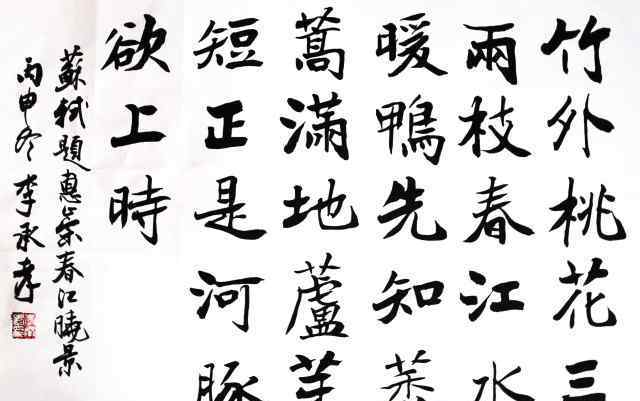 竹外桃花三
兩枝春江水
暖鴨先知蒌
蒿滿地蘆芽
短正是河豚
欲上時
蘇軾題惠崇春江曉景
丙申冬李承孝